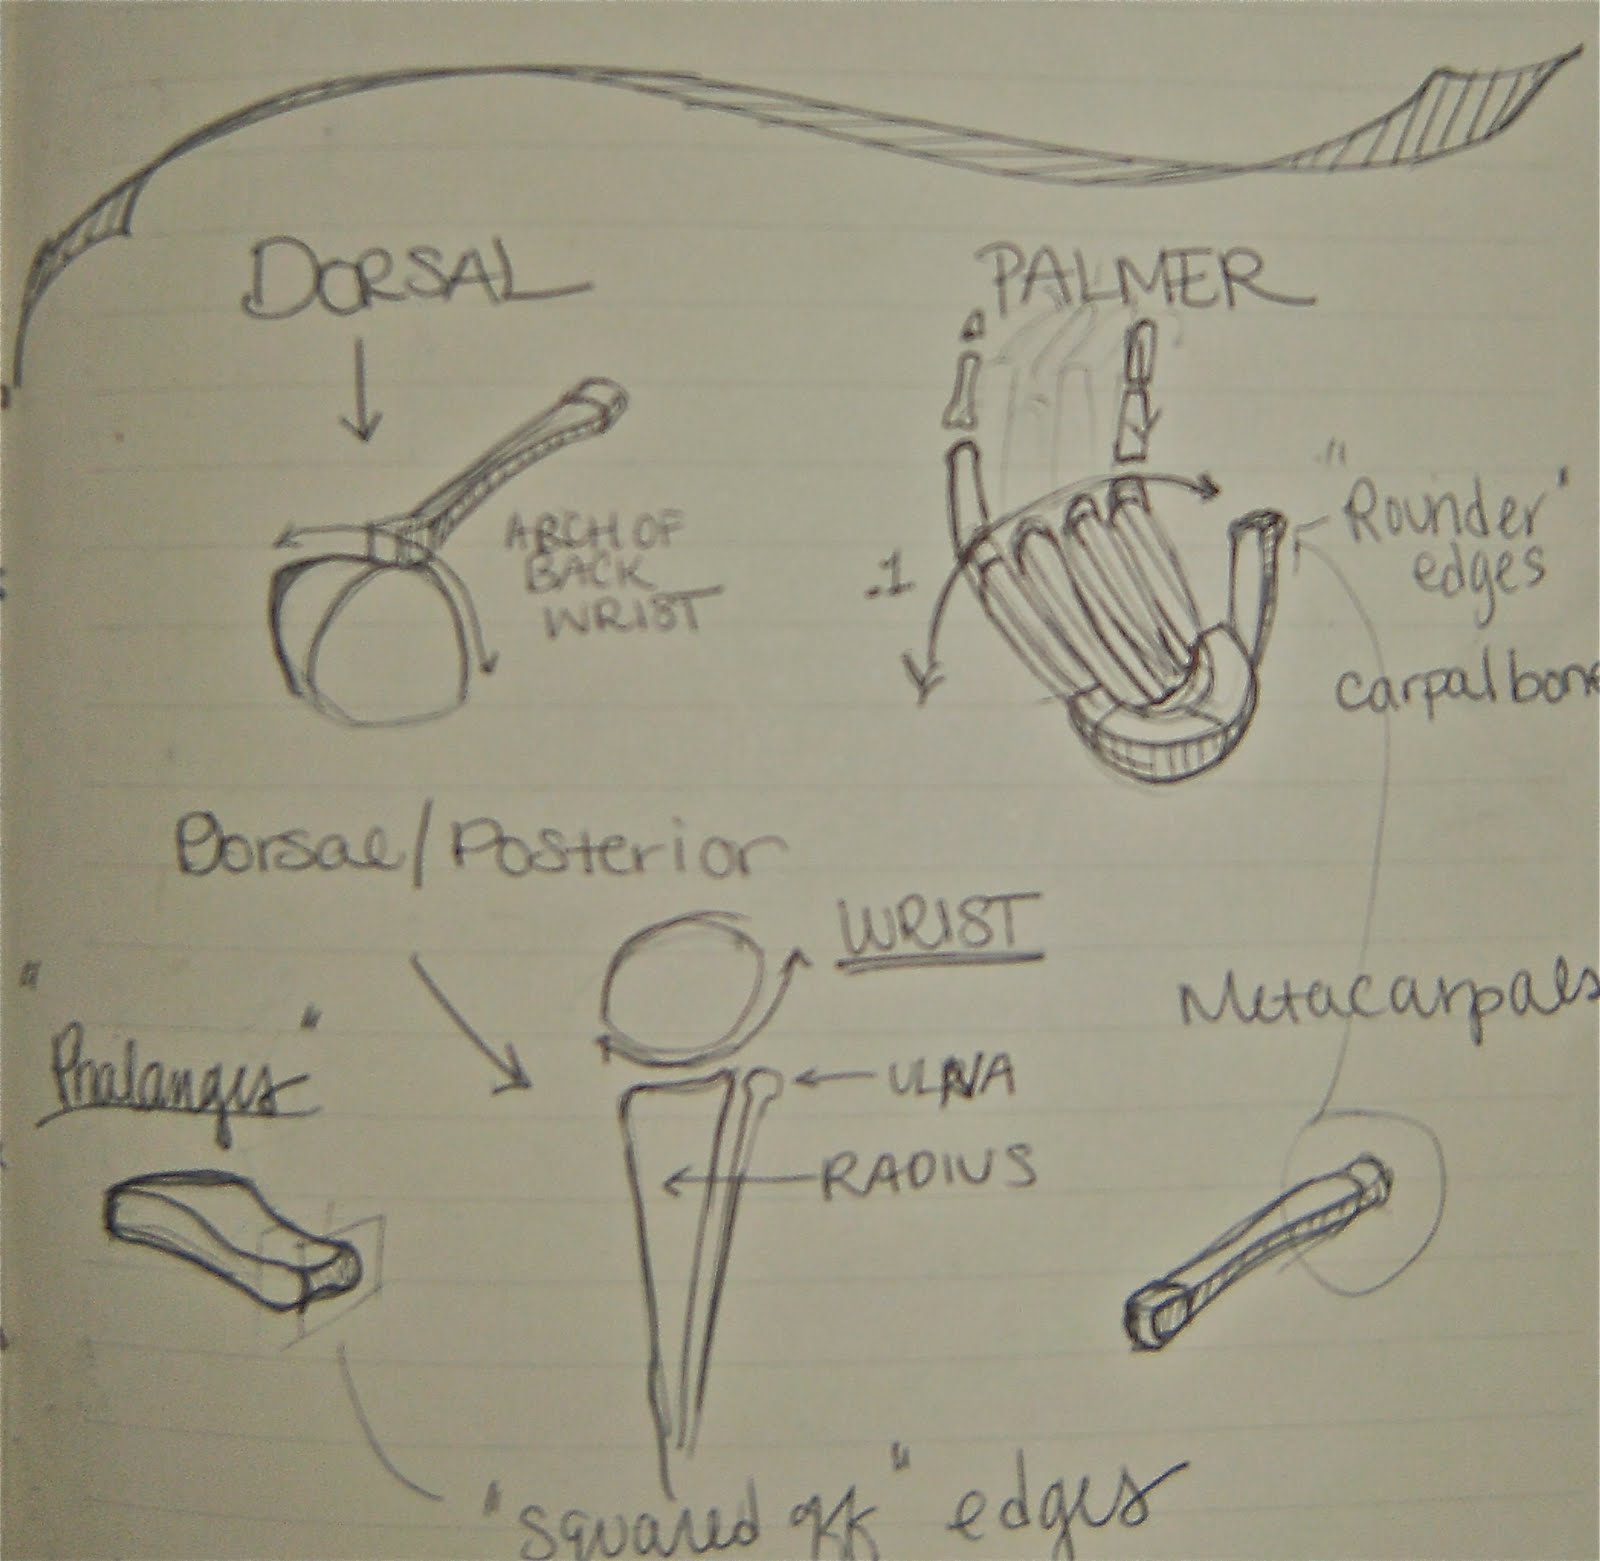 DORSAL
PALMER
ARCH OF
BACK
WRIST
"Rounder"
edges
.1
carpal bone
Dorsal/Posterior
WRIST
Metacarpals
"Phalanges"
ULNA
RADIUS
"squared off" edges